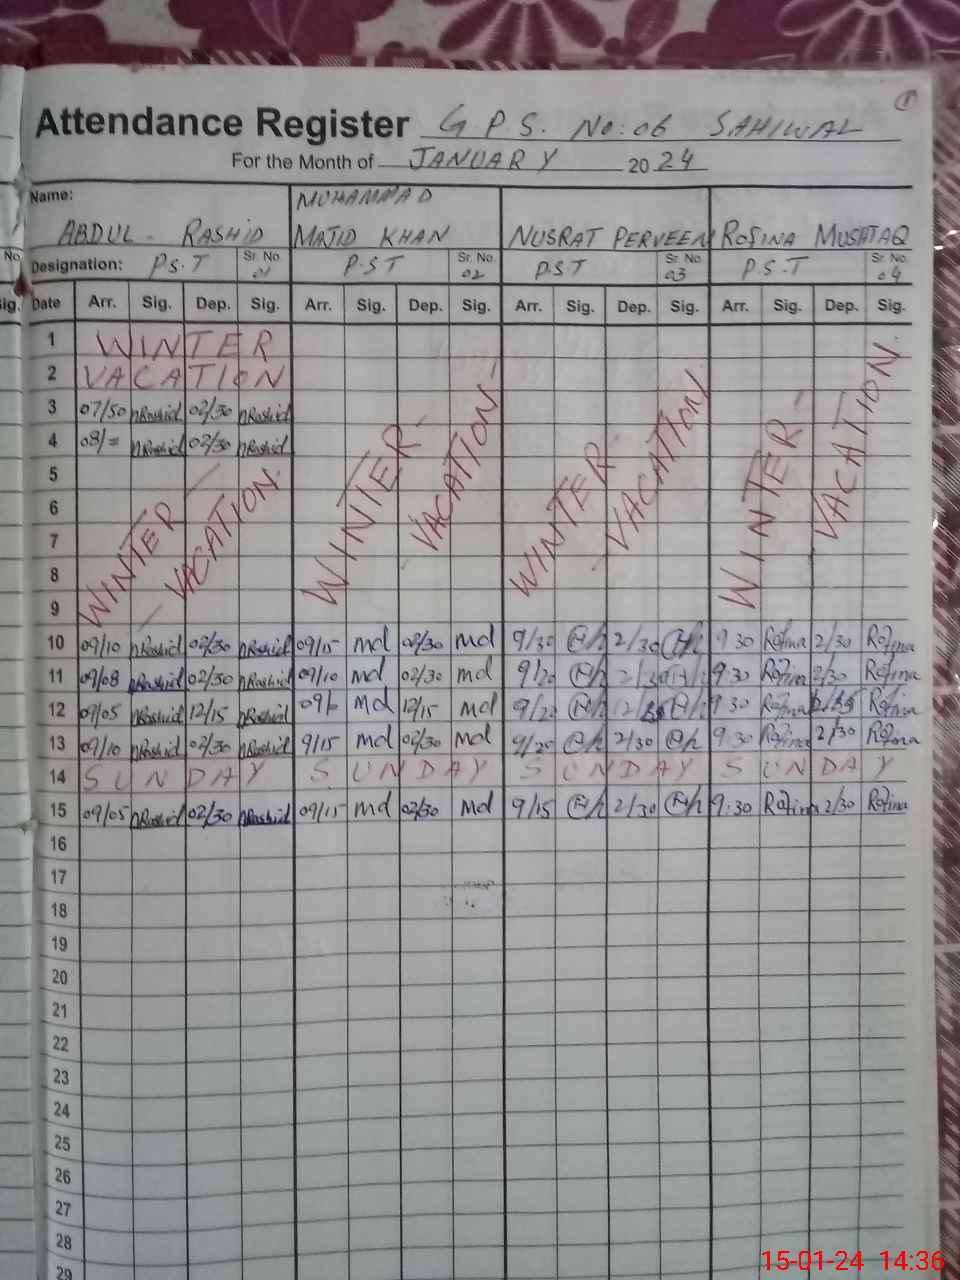 Attendance Register G.P.S. No:06 SAHIWAL
For the Month of JANUARY 2024
Name: ABDUL - RASHID MUHAMMAD MAJID KHAN NUSRAT PERVEEN ROFINA MUSHTAQ
No Designation: P.S.T Sr. No. 01 P.S.T Sr. No. 02 P.S.T Sr. No. 03 P.S.T Sr. No. 04
Sig. Date Arr. Sig. Dep. Sig. Arr. Sig. Dep. Sig. Arr. Sig. Dep. Sig. Arr. Sig. Dep. Sig.
1 WINTER
2 VACATION
3 07/50 Rashid 02/30 Rashid
4 08/= Rashid 02/30 Rashid
WINTER VACATION WINTER VACATION WINTER VACATION WINTER VACATION
5
6
7
8
9
10 09/10 Rashid 02/30 Rashid 09/15 md 02/30 md 9/30 2/30 9 30 Rofina 2/30 Rofina
11 09/08 Rashid 02/30 Rashid 09/10 md 02/30 md 9/20 9 30 Rofina 2/30 Rofina
12 09/05 Rashid 12/15 Rashid md 12/15 md 9/20 9 30 Rofina Rofina
13 09/10 Rashid 02/30 Rashid 9/15 md 02/30 md 9/20 2/30 9:30 Rofina 2/30 Rofina
14 SUNDAY SUNDAY SUNDAY SUNDAY
15 09/05 Rashid 02/30 Rashid 09/15 md 02/30 md 9/15 2/30 9:30 Rofina 2/30 Rofina
16
17
18
19
20
21
22
23
24
25
26
27
28
29
15-01-24 14:36